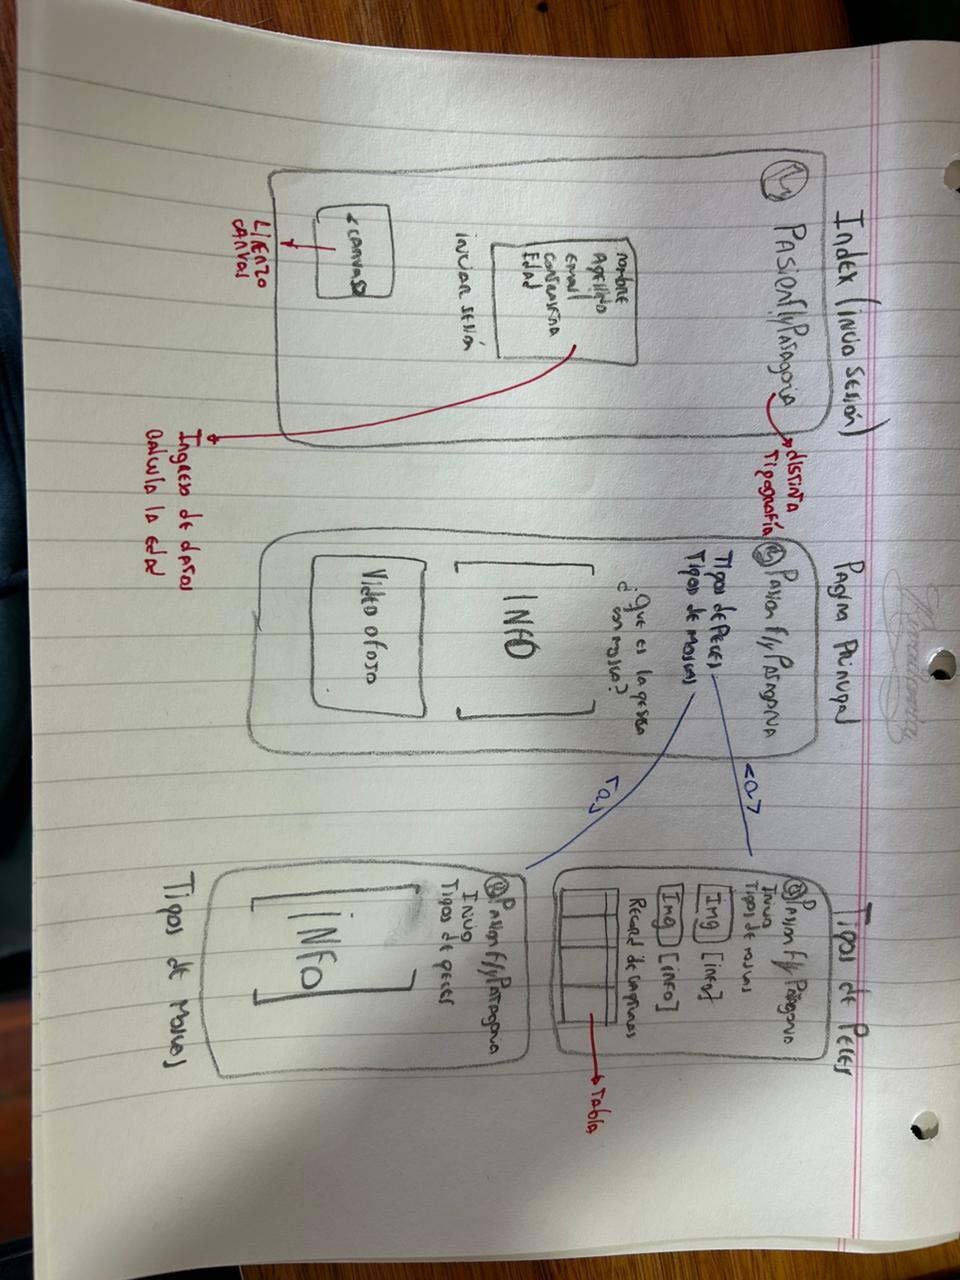 Index (Inicio sesión)
PasionflyPatagonia
distinta
Tipografía
nombre
Apellido
email
contraseña
Edad
iniciar sesión
<canvas>
Lienzo
canvas
Ingreso de datos
calcula la edad
Pagina Principal
Pasion FlyPatagonia
Tipos de Peces
Tipos de moscas
¿Que es la pesca
con mosca?
INFO
Video o foto
<a>
<a>
Tipos de Peces
Pasion FlyPatagonia
Inicio
Tipos de moscas
Img [info]
Img [info]
Record de capturas
Tabla
Pasion FlyPatagonia
Inicio
Tipos de peces
INFO
Tipos de Moscas